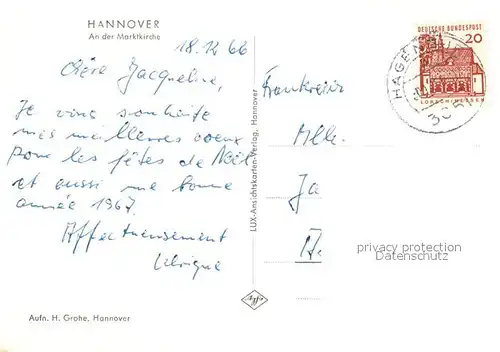 HANNOVER
An der Marktkirche
18.12.66
Chère Jacqueline,
Je vous souhaite
mes meilleures voeux
pour les fêtes de Noël
et aussi une bonne
année 1967.
Affectueusement
Ulrique
Aufn. H. Grohe, Hannover
LUX-Ansichtskarten-Verlag, Hannover
effge
DEUTSCHE BUNDESPOST
20
LORSCH/HESSEN
HAGENBURG
Frankreich
Mlle.
Ja
privacy protection
Datenschutz